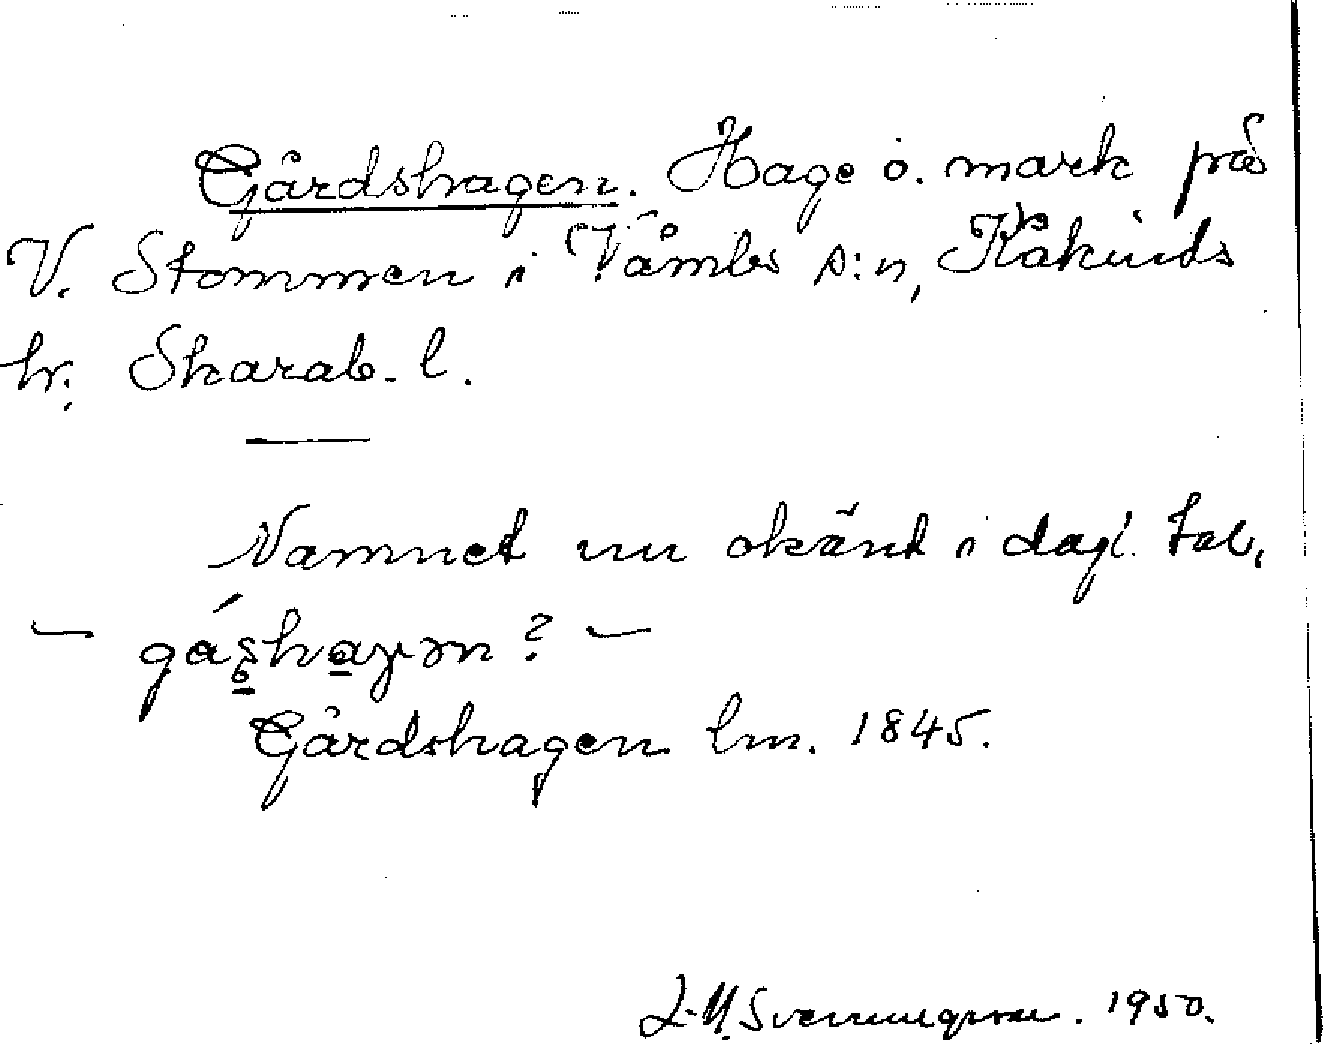 Gårdshagen. Hage o. mark på
V. Stommen i Våmbs s:n, Kåkinds
hr. Skarab. l.
Namnet nu okänt i dagl. tal,
— ? —
Gårdshagen lm. 1845.
1950.